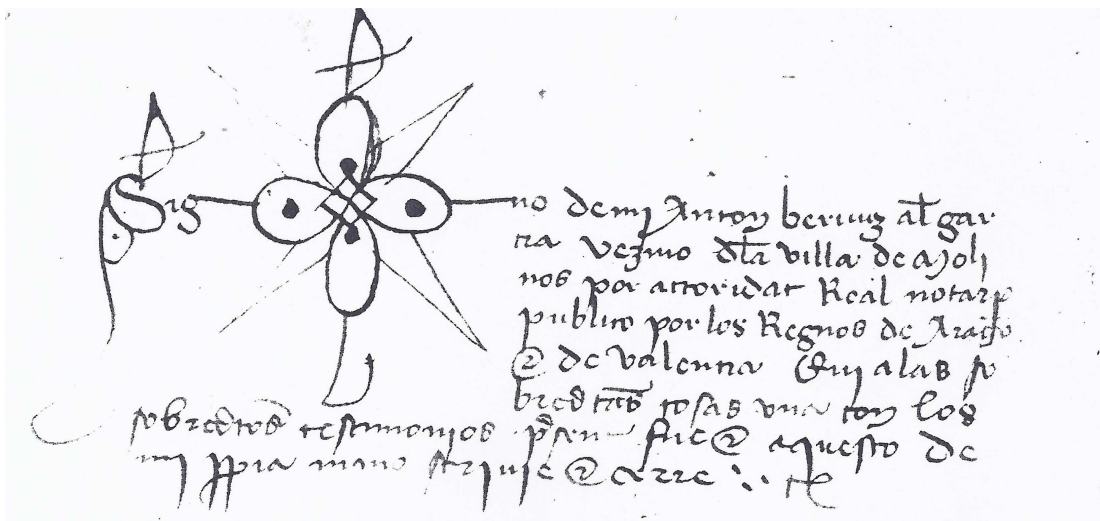 Sig no de mi Anton beruuz al gar
cia vezino dla villa de Moli
nos por actoridat Real notario
publico por los Regnos de Arago
& de valencia Qui a las so
bredtas cosas una con los
sobredtos testimonios psen fue & aquesto de
mi ppia mano scriuie & carre